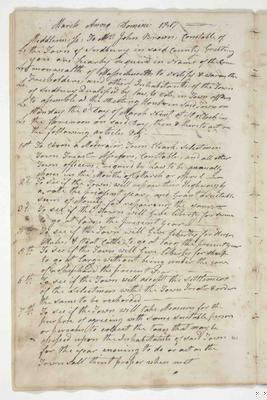 March Anno Domini 1817
Middlesex Ss. To Mr. John Brown Constable of
the Town of Sudbury in said County Greeting
you are hereby required in Name of the Com
monwealth of Massachusetts to Notify & Warn the
Freeholders and other Inhabitants of the Town
of Sudbury qualified by Law to vote in Town affairs
to assemble at the Meeting House in said Town on
Monday the 3 day of March Next at 10 o'Clock in
the forenoon on said day then & there to act on
the following articles Viz.
1st To chose a Moderator Town Clerk Selectmen
Town Treasurer Assessors Constables and all other
Town officers required by Law to be annually
chosen in the Months of March or April
2d To see if the Town will repair their Highways
by a rate the present year, and Grant such
sum of Money for repairing the same
3d To see if the Town will give liberty for
the present year
4th To see if the Town will Give liberty for Horses
Mules & Neat Cattle to go at large the present year
5th To see if the Town will Give liberty for Sheep
to go at large without being under the care
of a Shepherd the present
6th To see if the Town will accept the Settlement
of the Selectmen with the Town Treasurer & order
the same to be recorded
7th To see if the Town will take Measures for the
purpose of agreeing with some suitable person
or persons to collect the taxes that may be
assessed upon the Inhabitants of said Town
for the year ensuing to do or act as the
Town shall think proper when met